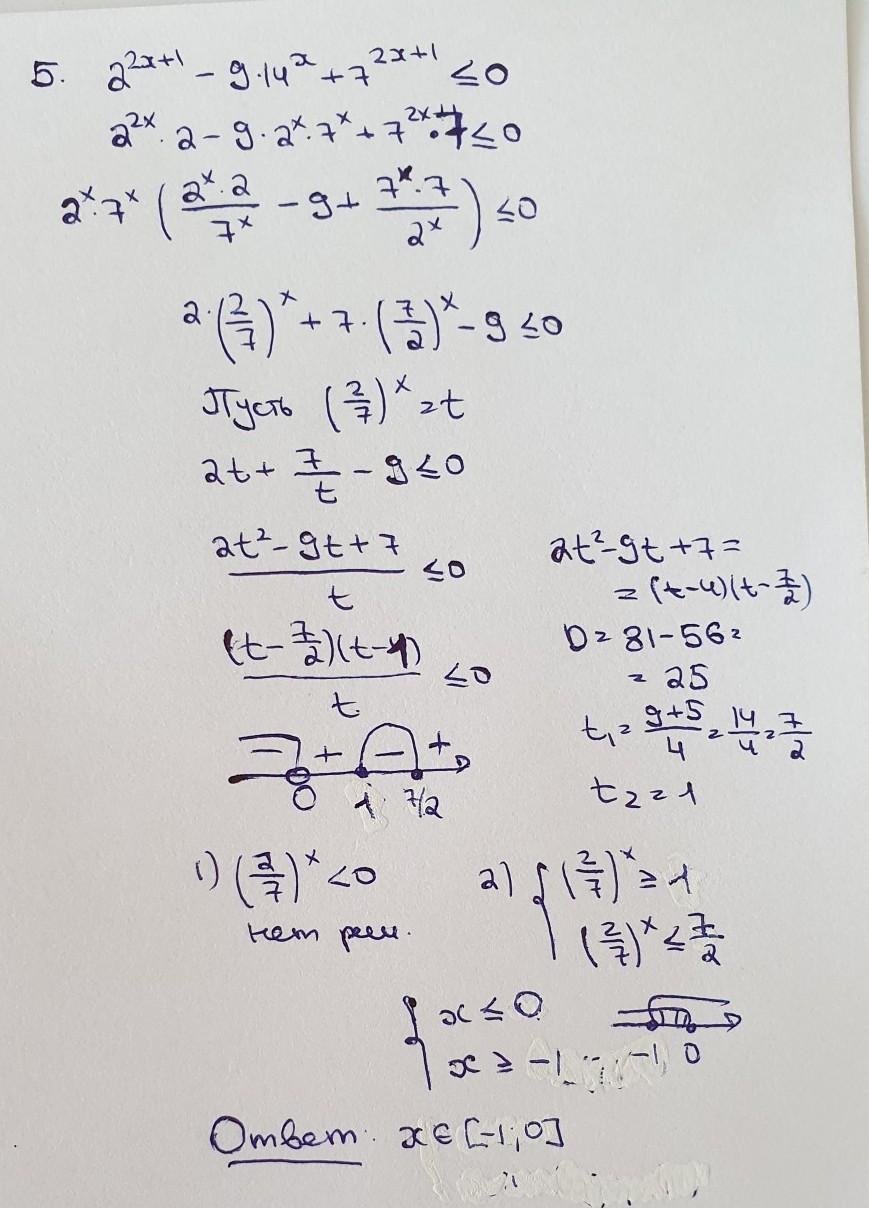 5. 2^{2x+1} - 9·14^x + 7^{2x+1} ≤ 0
2^{2x}·2 - 9·2^x·7^x + 7^{2x}·7 ≤ 0
2^x·7^x (\frac{2^x·2}{7^x} - 9 + \frac{7^x·7}{2^x}) ≤ 0
2·(\frac{2}{7})^x + 7·(\frac{7}{2})^x - 9 ≤ 0
Пусть (\frac{2}{7})^x = t
2t + \frac{7}{t} - 9 ≤ 0
\frac{2t^2 - 9t + 7}{t} ≤ 0
\frac{(t - \frac{7}{2})(t - 1)}{t} ≤ 0
- + - +
0 1 7/2
2t^2 - 9t + 7 =
= (t-4)(t - \frac{7}{2})
D = 81 - 56 =
= 25
t_1 = \frac{9+5}{4} = \frac{14}{4} = \frac{7}{2}
t_2 = 1
1) (\frac{2}{7})^x < 0
нет реш.
2) { (\frac{2}{7})^x ≥ 1
(\frac{2}{7})^x ≤ \frac{7}{2}
{ x ≤ 0
x ≥ -1
-1 0
Ответ: x ∈ [-1; 0]